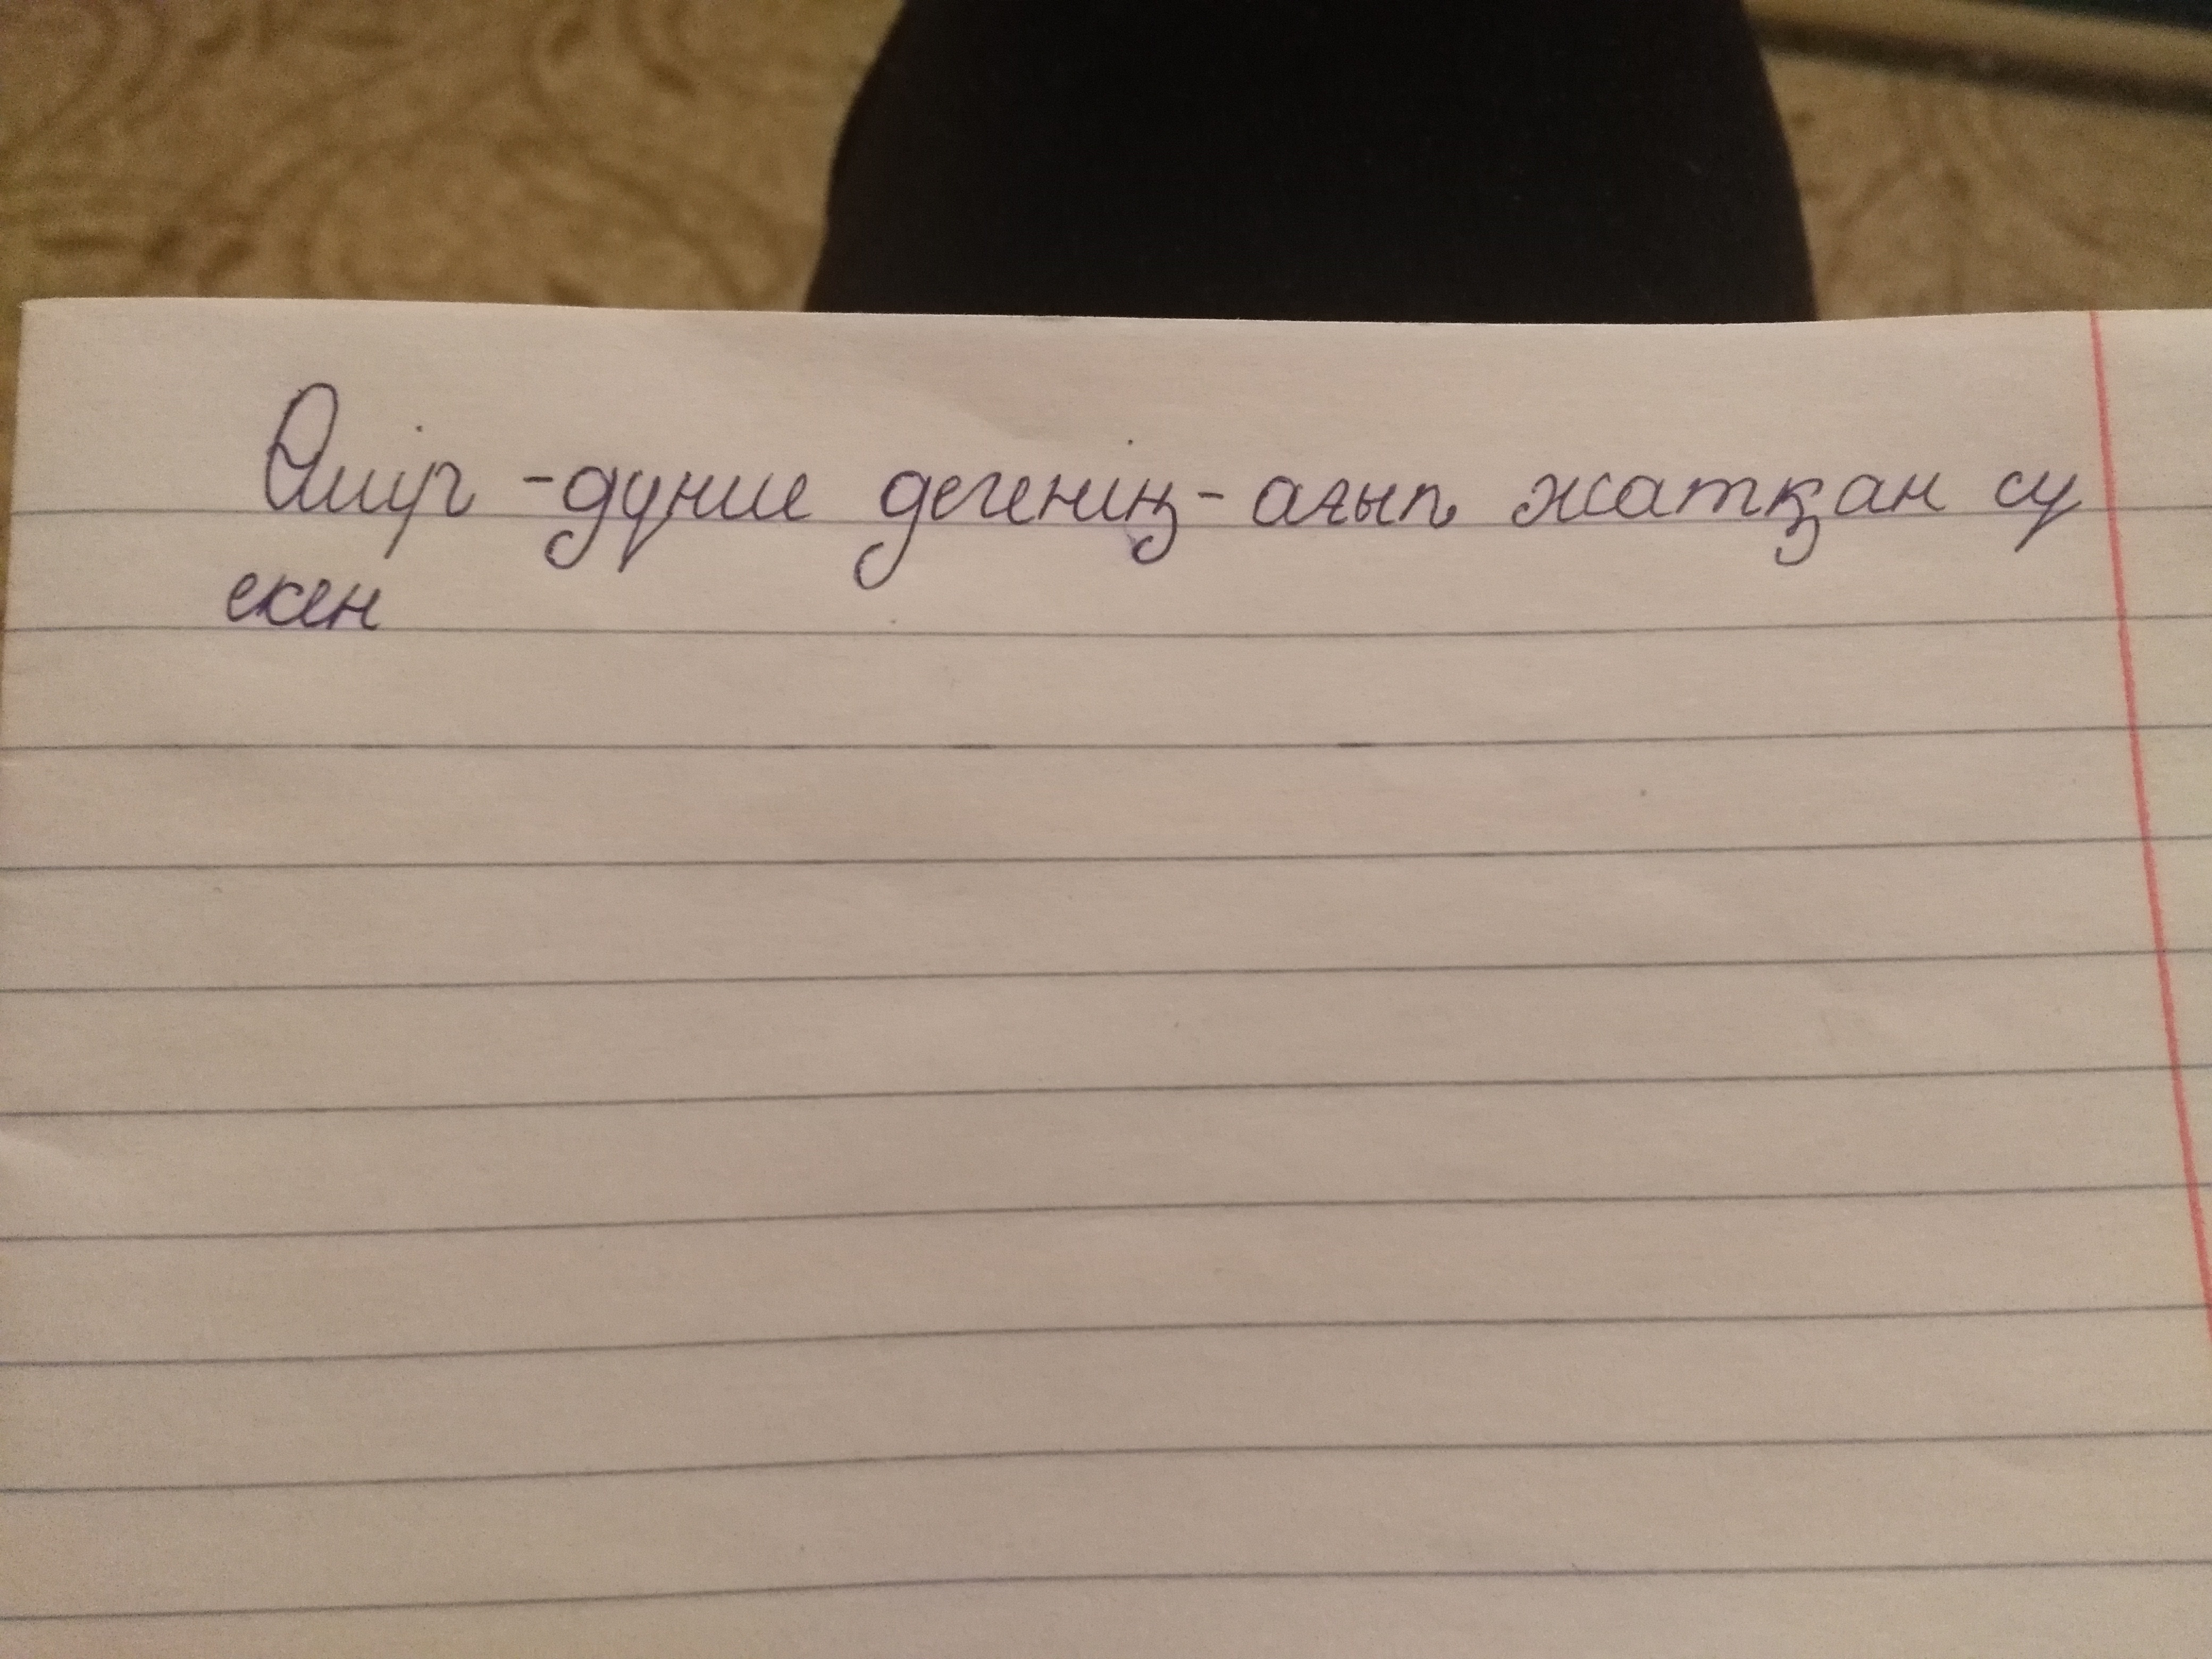 Өмір -дүние дегенің- ағып жатқан су
екен